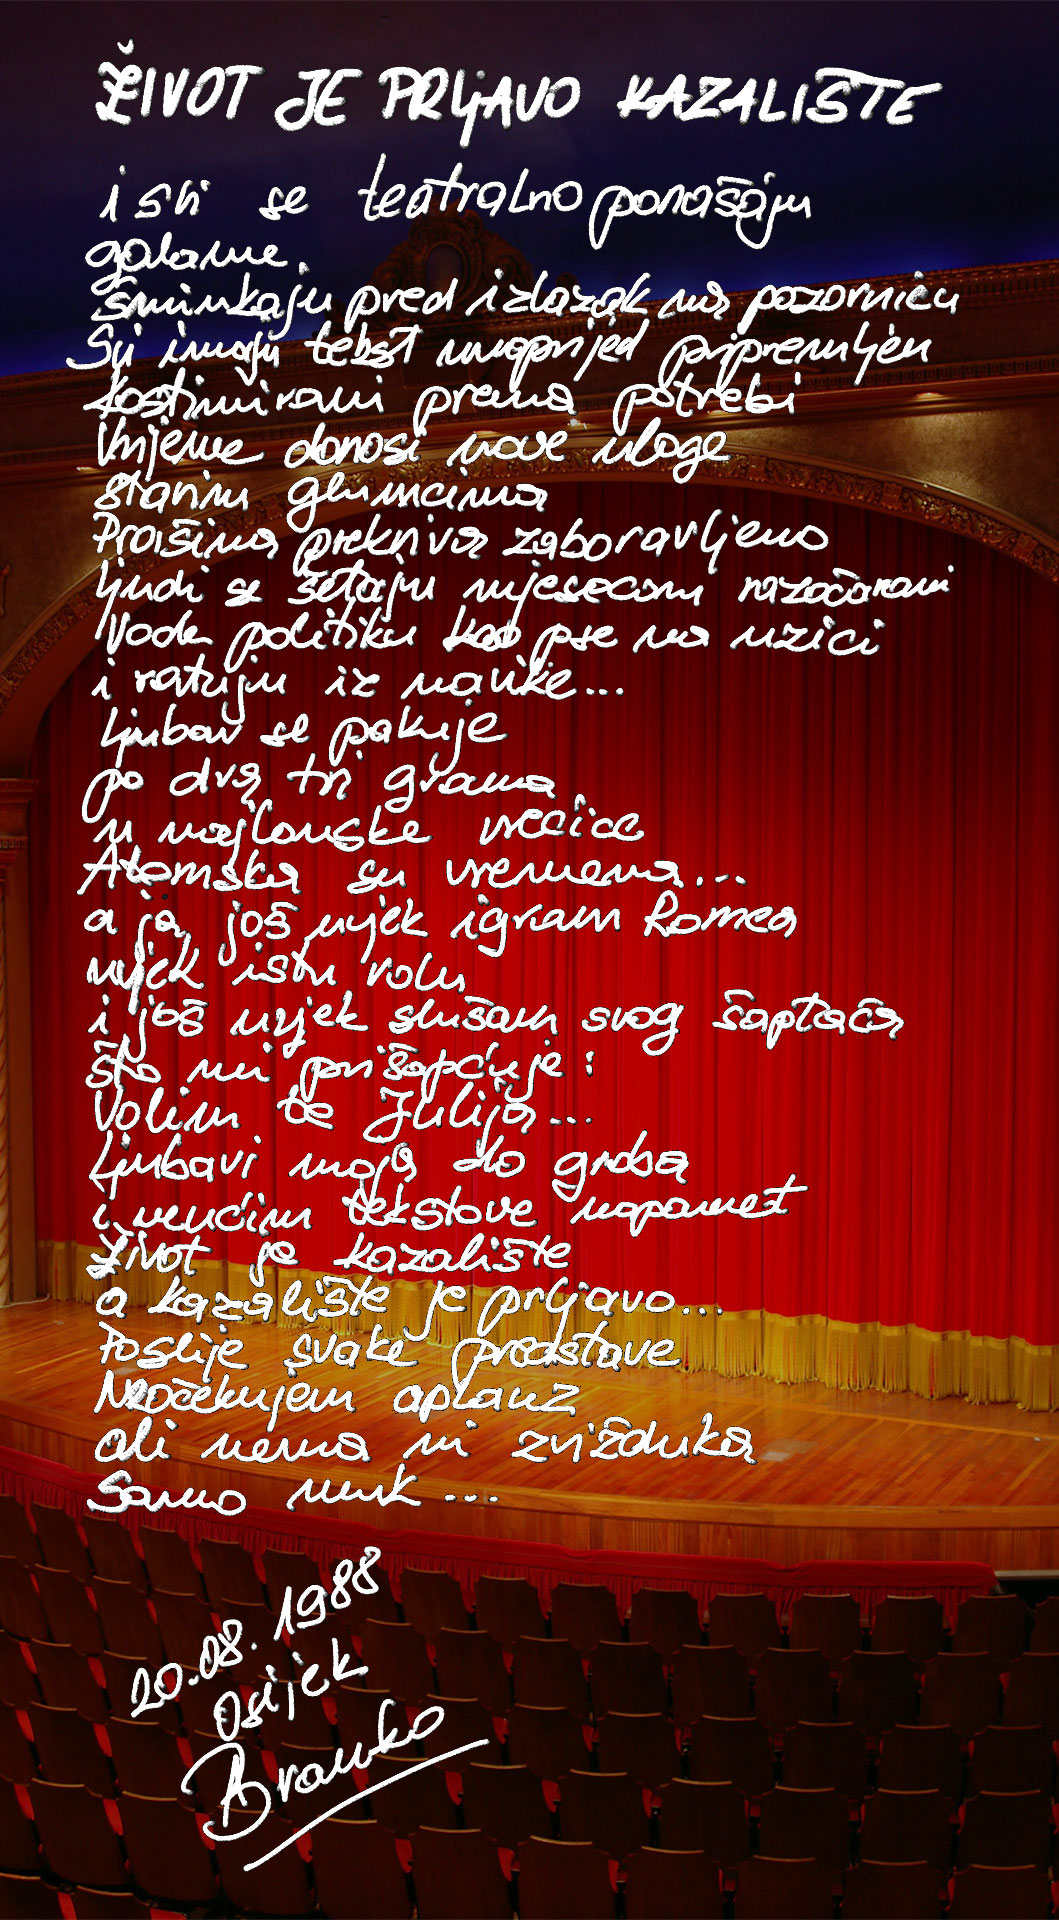 ŽIVOT JE PRLJAVO KAZALIŠTE
i svi se teatralno ponašaju
galame,
šminkaju pred izlazak na pozornicu
Svi imaju tekst unaprijed pripremljen
Kostimirani prema potrebi
Vrijeme donosi nove uloge
starim glumcima
Prašina prekriva zaboravljeno
Ljudi se šetaju mjesecom razočarani
Vode politiku kao pse na uzici
i ratuju iz navike...
Ljubav se pakuje
po dva tri grama
u najlonske vrećice
Atomska su vremena...
a ja još uvjek igram Romea
uvjek istu rolu
i još uvjek slušam svog šaptača
što mi prišapćuje:
Volim te Julija...
Ljubavi moja do groba
i venućim tekstove napamet
Život je kazalište
a kazalište je prljavo...
Poslije svake predstave
Neočekujem aplauz
ali nema ni zvižduka
Samo muk...
20.08.1988
Osijek
Branko